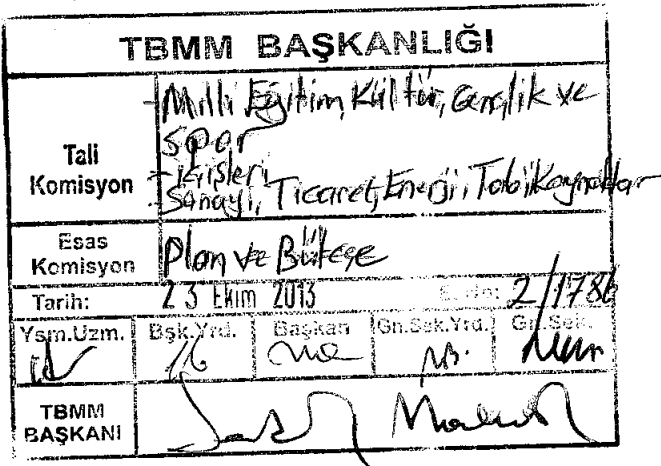 TBMM BAŞKANLIĞI
Tali Komisyon
-Milli Eğitim, Kültür, Gençlik ve
Spor
-İçişleri
-Sanayi, Ticaret, Enerji, Tabi Kaynaklar
Esas Komisyon
Plan ve Bütçe
Tarih: 23 Ekim 2013 E. No: 2/1786
Ysm.Uzm. Bşk.Yrd. Başkan Gn.Sek.Yrd. Gn.Sek.
TBMM
BAŞKANI